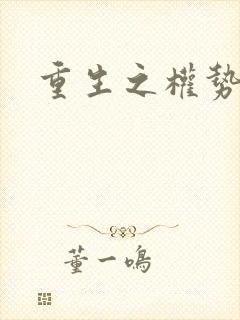 重生之權勢
董一鳴